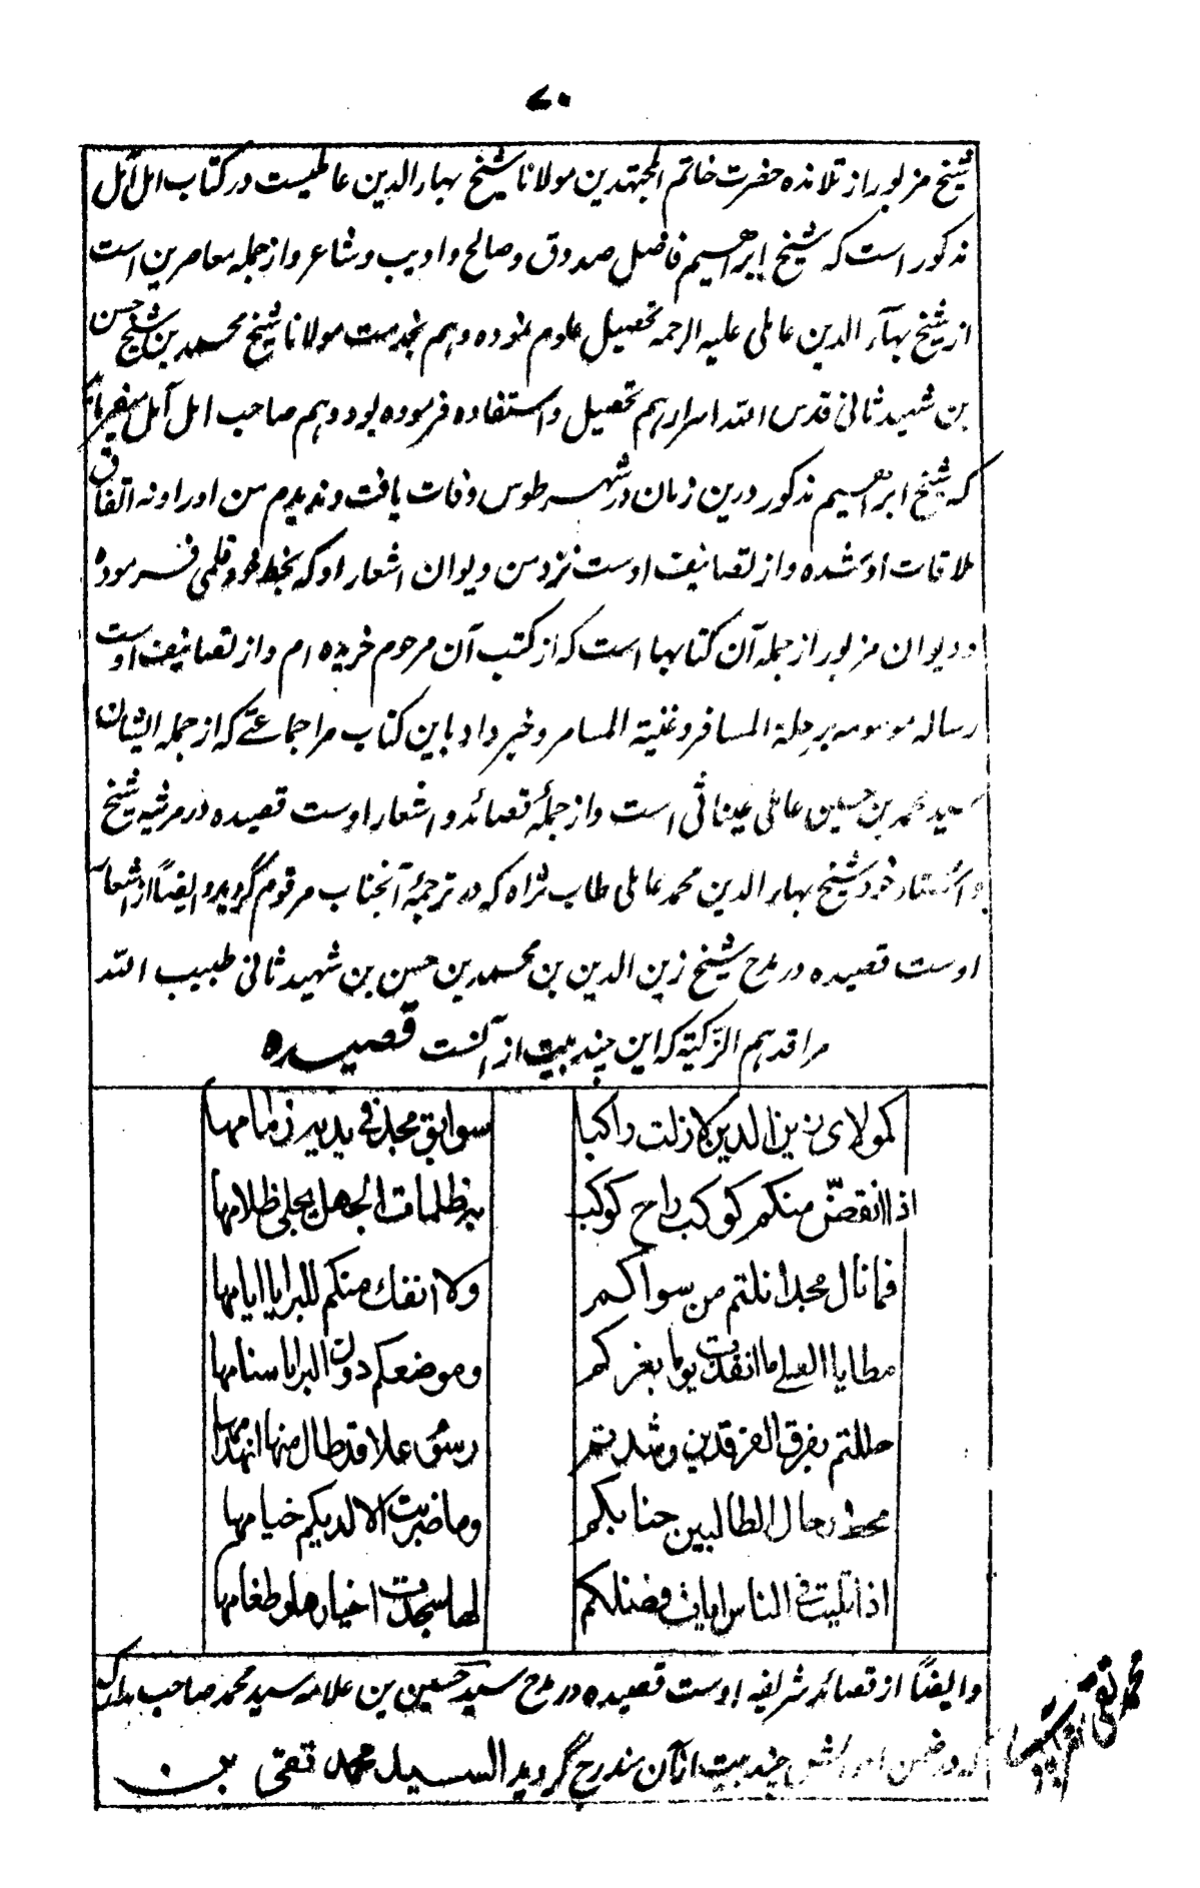 ۷۰
شیخ مزبور از تلامذه حضرت خاتم المجتهدین مولانا شیخ بهاء الدین عاملیست و در کتاب امل آمل
مذکور است که شیخ ابراهیم فاضل صدوق و صالح و ادیب و شاعر و از جمله معاصرین است
از شیخ بهآء الدین عاملی علیه الرحمه تحصیل علوم نموده و هم بخدمت مولانا شیخ محمد بن شیخ حسن
بن شهید ثانی قدس الله اسرارهم تحصیل و استفاده فرموده بود و هم صاحب امل آمل میفرماید
که شیخ ابراهیم مذکور درین زمان در شهر طوس وفات یافت و ندیدم من او را و نه اتفاق
ملاقات او شده و از تصانیف اوست نزد من دیوان اشعار او که بخط خود قلمی فرموده
و دیوان مزبور از جمله آن کتابها است که از کتب آن مرحوم خریده ام و از تصانیف اوست
رساله موسومه برحلة المسافر و غنیة المسامر و خبر داد باین کتاب مرا جماعتے که از جمله ایشان
سید محمد بن حسین عاملی عیناثی است و از جملۂ قصائد و اشعار اوست قصیده در مرثیه شیخ
و استاد خود شیخ بهاء الدین محمد عاملی طاب ثراه که در ترجمۂ آنجناب مرقوم گردید و ایضاً از اشعار
اوست قصیده در مدح شیخ زین الدین بن محمد بن حسن بن شهید ثانی طیب الله
مراقدهم الزکیّة که این چند بیت از آنست قصیده
کمولای زین الدین لازلت راکبا سوابق مجد فی یدیه زمامها
اذا انقضّ منکم کوکب راح کوکب به ظلمات الجهل یجلی ظلامها
فما نال مجدا نلتم من سواکم ولا انفک منکم للبرایا امامها
مطایا العلے ما انقدت یوما بغیرکم وموضعکم دون البرایا سنامها
حللتم بفرق الفرقدین وشدتم رسوم علا قد طال منها انهدامها
محط رحال الطالبین جنابکم وما ضربت الا لدیکم خیامها
اذا تلیت فی الناس ایات فضلکم لها سجدت اخیارها و طغامها
و ایضاً از قصائد شریفه اوست قصیده در مدح سید حسین بن علامه سید محمد صاحب مدارک
که در ضمن چند بیت از آن مندرج گردید السید محمد تقی بن
محمد تقی